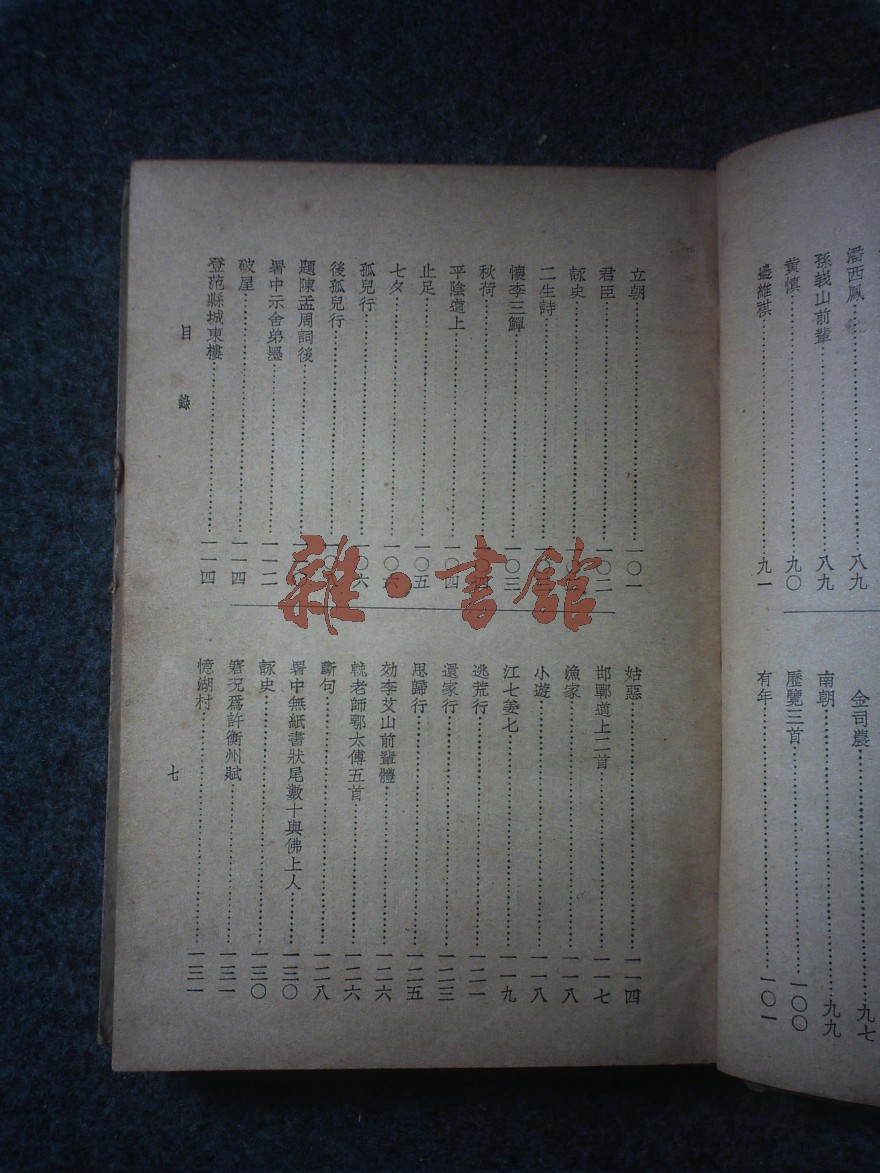 潘西鳳……八九
孫峩山前輩……八九
黃慎……九〇
邊維祺……九一
金司農……九七
南朝……九九
歷覽三首……一〇〇
有年……一〇一
立朝……一〇一
君臣……一〇二
詠史
二生詩
懷李三鱓……一〇三
秋荷
平陰道上……一〇四
止足……一〇五
七夕……一〇六
孤兒行……一〇六
後孤兒行
題陳孟周詞後
署中示舍弟墨……一一二
破屋……一一四
登范縣城東樓……一一四
姑惡……一一四
邯鄲道上二首……一一七
漁家……一一八
小遊……一一八
江七姜七……一一九
逃荒行……一二一
還家行……一二三
思歸行……一二五
効李艾山前輩體……一二六
輓老師鄂太傅五首……一二六
斷句……一二八
署中無紙書狀尾數十與佛上人……一三〇
詠史……一三〇
窘況爲許衡州賦……一三一
憶湖村……一三一
目錄
七
雜·書館